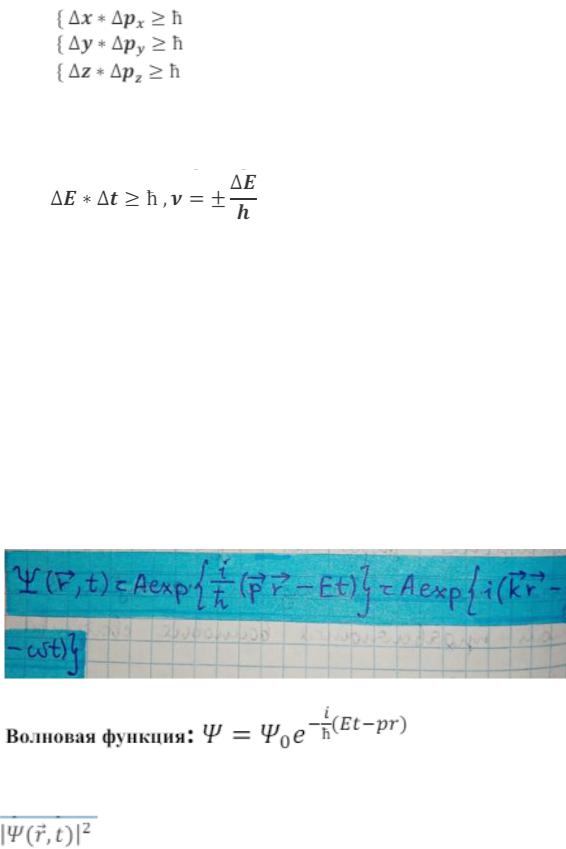 { Δx * Δpₓ ≥ ħ
{ Δy * Δp_y ≥ ħ
{ Δz * Δp_z ≥ ħ
ΔE * Δt ≥ ħ , ν = ± ΔE/h
Ψ(r⃗,t) = A exp{i/ħ (p⃗r⃗ − Et)} = A exp{i(k⃗r⃗ −
− ωt)}
Волновая функция: Ψ = Ψ₀e^(−i/ħ(Et−pr))
|Ψ(r⃗,t)|²